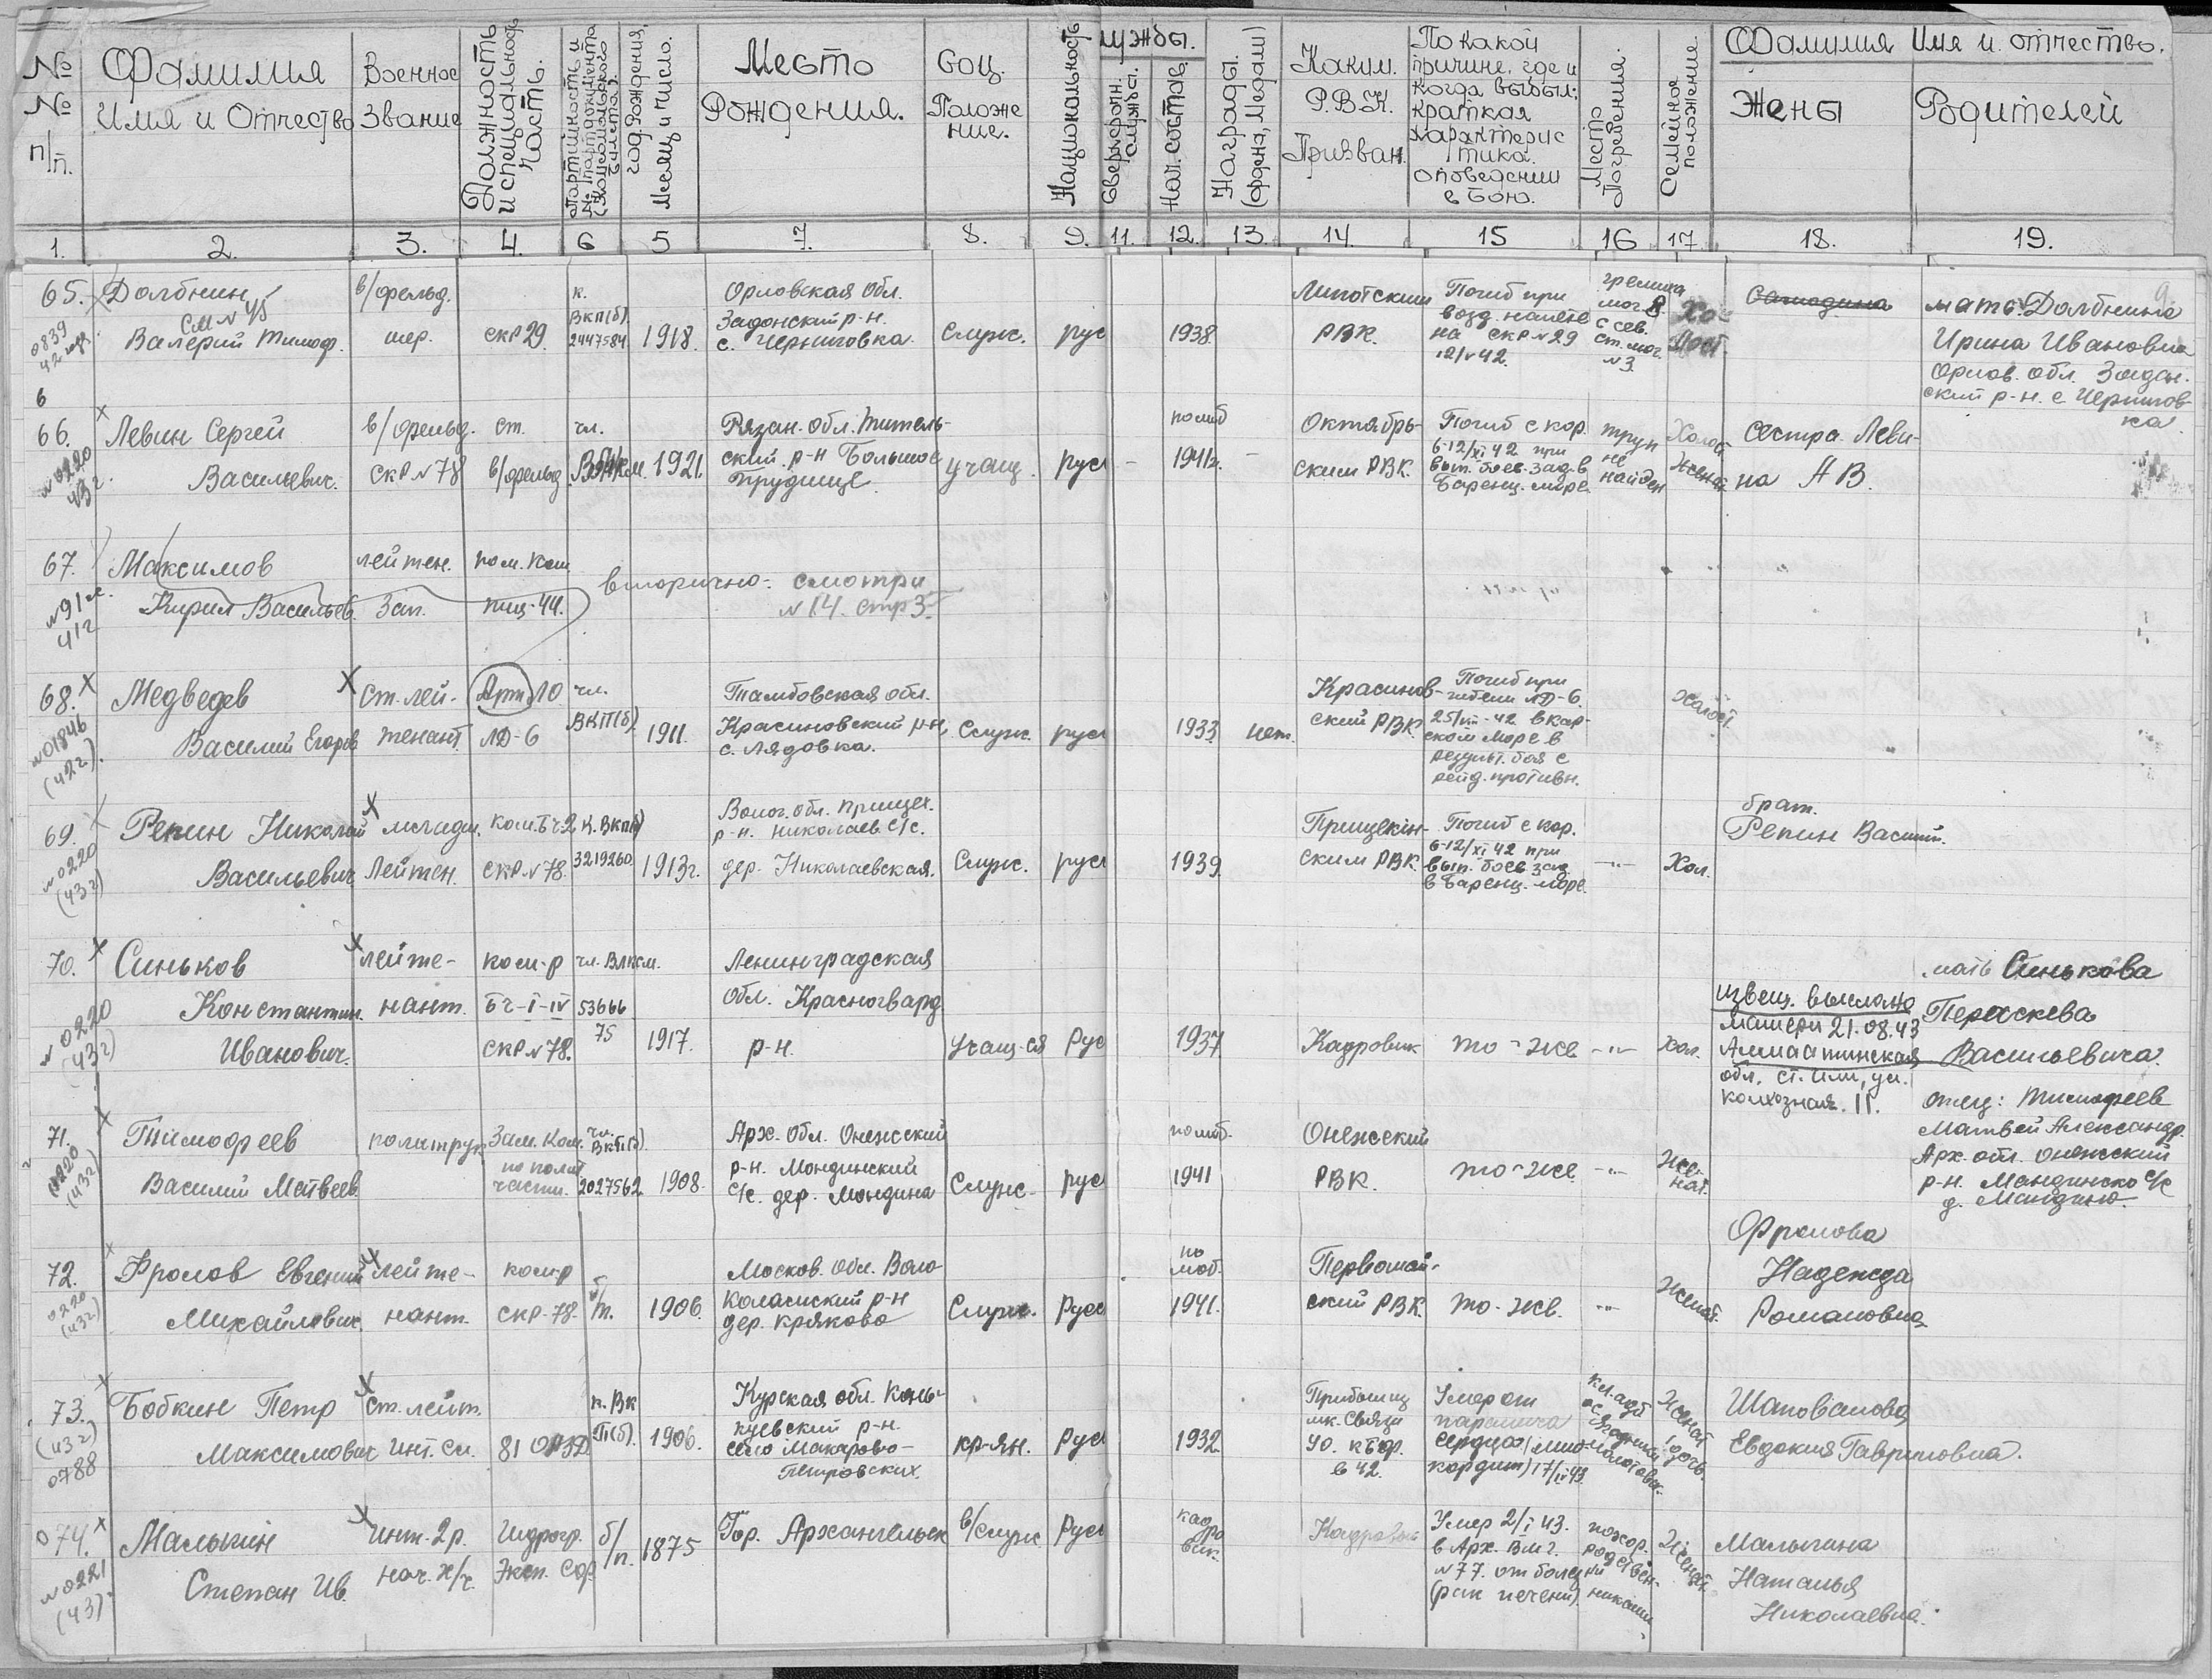 № № п/п.
Фамилия Имя и Отчество
Военное Звание
Должность и специальность часть.
Партийность и № партдокумента (Комсомольского билета)
год рождения, Месяц и число.
Место Рождения.
Соц. Положение.
Национальность
службы.
Сверхсрочн. служба.
Нач. состав.
Награды. (ордена, Медали)
Каким Р.В.К. Призван.
По какой причине, где и когда выбыл; краткая характеристика о поведении в бою.
Место Погребения.
Семейное положение
Фамилия Имя и отчество.
Жены
Родителей
1. 2. 3. 4. 6 5 7. 8. 9. 11. 12. 13. 14. 15 16 17 18. 19.
65. Долбнин в/фельд. к. Орловская обл. Липотским Погиб при мать: Долбнина
0839 см N 45 ВКП(б) Задонский р-н. возд. налете с сев.
Валерий Тимоф. шер. СКР 29. 2447584 1918. с. Черниговка. Служ. рус 1938. РВК. на СКР N 29 ст. мог. Холост. Ирина Ивановна
12/V 42. N 3. Орлов. обл. Задон-
ский р-н. с Чернигов-
ка
6
66. Левин Сергей в/фельд. ст. чл. Рязан. обл. по моб Октябрь- Погиб с кор. труп Холост сестра Леви-
N 0220 43г. Васильевич. СКР N 78 в/фельд. ВЛКСМ. 1921. ский р-н Большое Прудище учащ. рус - 1941г. - ским РВК. 6-12/XI 42 при вып. боев. зад. в Баренц. море не найден Женат на А В.
67. Максимов лейтен. пом. ком. вторично - смотри
N 91 41г Кирил Васильев. Зап. тщ-44. N 14. стр 3.
68. Медведев ст. лей- Арт. ЛО чл. Тамбовская обл. Красинов- Погиб при
N 01846 (42г). Василий Егоров тенант ЛД-6 ВКП(б). 1911. Красиновский р-н, с. Лядовка. Служ. рус 1933. нет. ский РВК гибели ЛД-6. 25/VIII-42 в Карском море в результ. боя с рейд. противн. Холост.
69. Репин Николай младш. ком. БЧ-2 К. ВКП(б) Волог. обл. Прищек- Погиб с кор. брат.
р-н. Николаев. С/с. Репин Василий.
N 0220 (43г) Васильевич Лейтен. СКР N 78. 3219260. 1913г. дер. Николаевская. Служ. рус 1939. ским РВК 6-12/XI 42 при вып. боев зад. в Баренц. море. -"- Хол.
70. Синьков лейте- ком-р чл. Влксм. Ленинградская мать Синькова
N 0220 (43г) Константин. нант. БЧ-I-IV 53666 обл. Красногвард. извещ. выслано Параскева
Иванович. СКР N 78. 75 1917. р-н. учащ-ся Рус 1937 Кадровик то-же -"- Хол. матери 21.08.43 Васильевича.
Алмаатинская
обл. ст. Или, ул.
колхозная. 11.
71. Тимофеев политрук Зам. Ком. чл. ВКП(б). Арх. обл. Онежский по моб. Онежский отец: Тимофеев
0220 (43г) Василий Матвеев. по полит части. 2027562 1908. р-н. Мондинский с/с. дер. Мондина Служ. рус 1941 РВК. то-же -"- Женат. Матвей Александр.
Арх. обл. Онежский
р-н. Мандинско с/с
д. Мандино.
72. Фролов Евгений лейте- ком-р Москов. обл. Воло- по моб. Первомай- Фролова
Надежда
0220 (43г) Михайлович. нант. СКР-78. б/п. 1906. коламский р-н дер. Кряково Служ. Рус 1941. ский РВК то-же. -"- Женат. Романовна
73. Бобкин Петр ст. лейт. к. ВК Курская обл. Прибыл из Умер от Женат Шаповалова
(43г) 0788 Максимович инт. сл. 81 П(б). 1906. р-н. село Макарово-Петровских. кр-ян. Рус 1932 мк. связи УО. к БФ. в 42. паралича сердца (миокардит) 17/II 43 1 дочь. Евдокия Гавриловна.
074. Малыгин инт. 2 р. Гидрогр. б/п. 1875 Гор. Архангельск в/служ. Рус кадровик. Кадровик Умер 2/I 43. похор. Женат Малыгина
N 0221 (43). Степан Ив. нач. х/ч. Эксп. СФ. в Арх. ВМГ. N 77. от болезни (рак печени). родственниками Наталья
Николаевна.